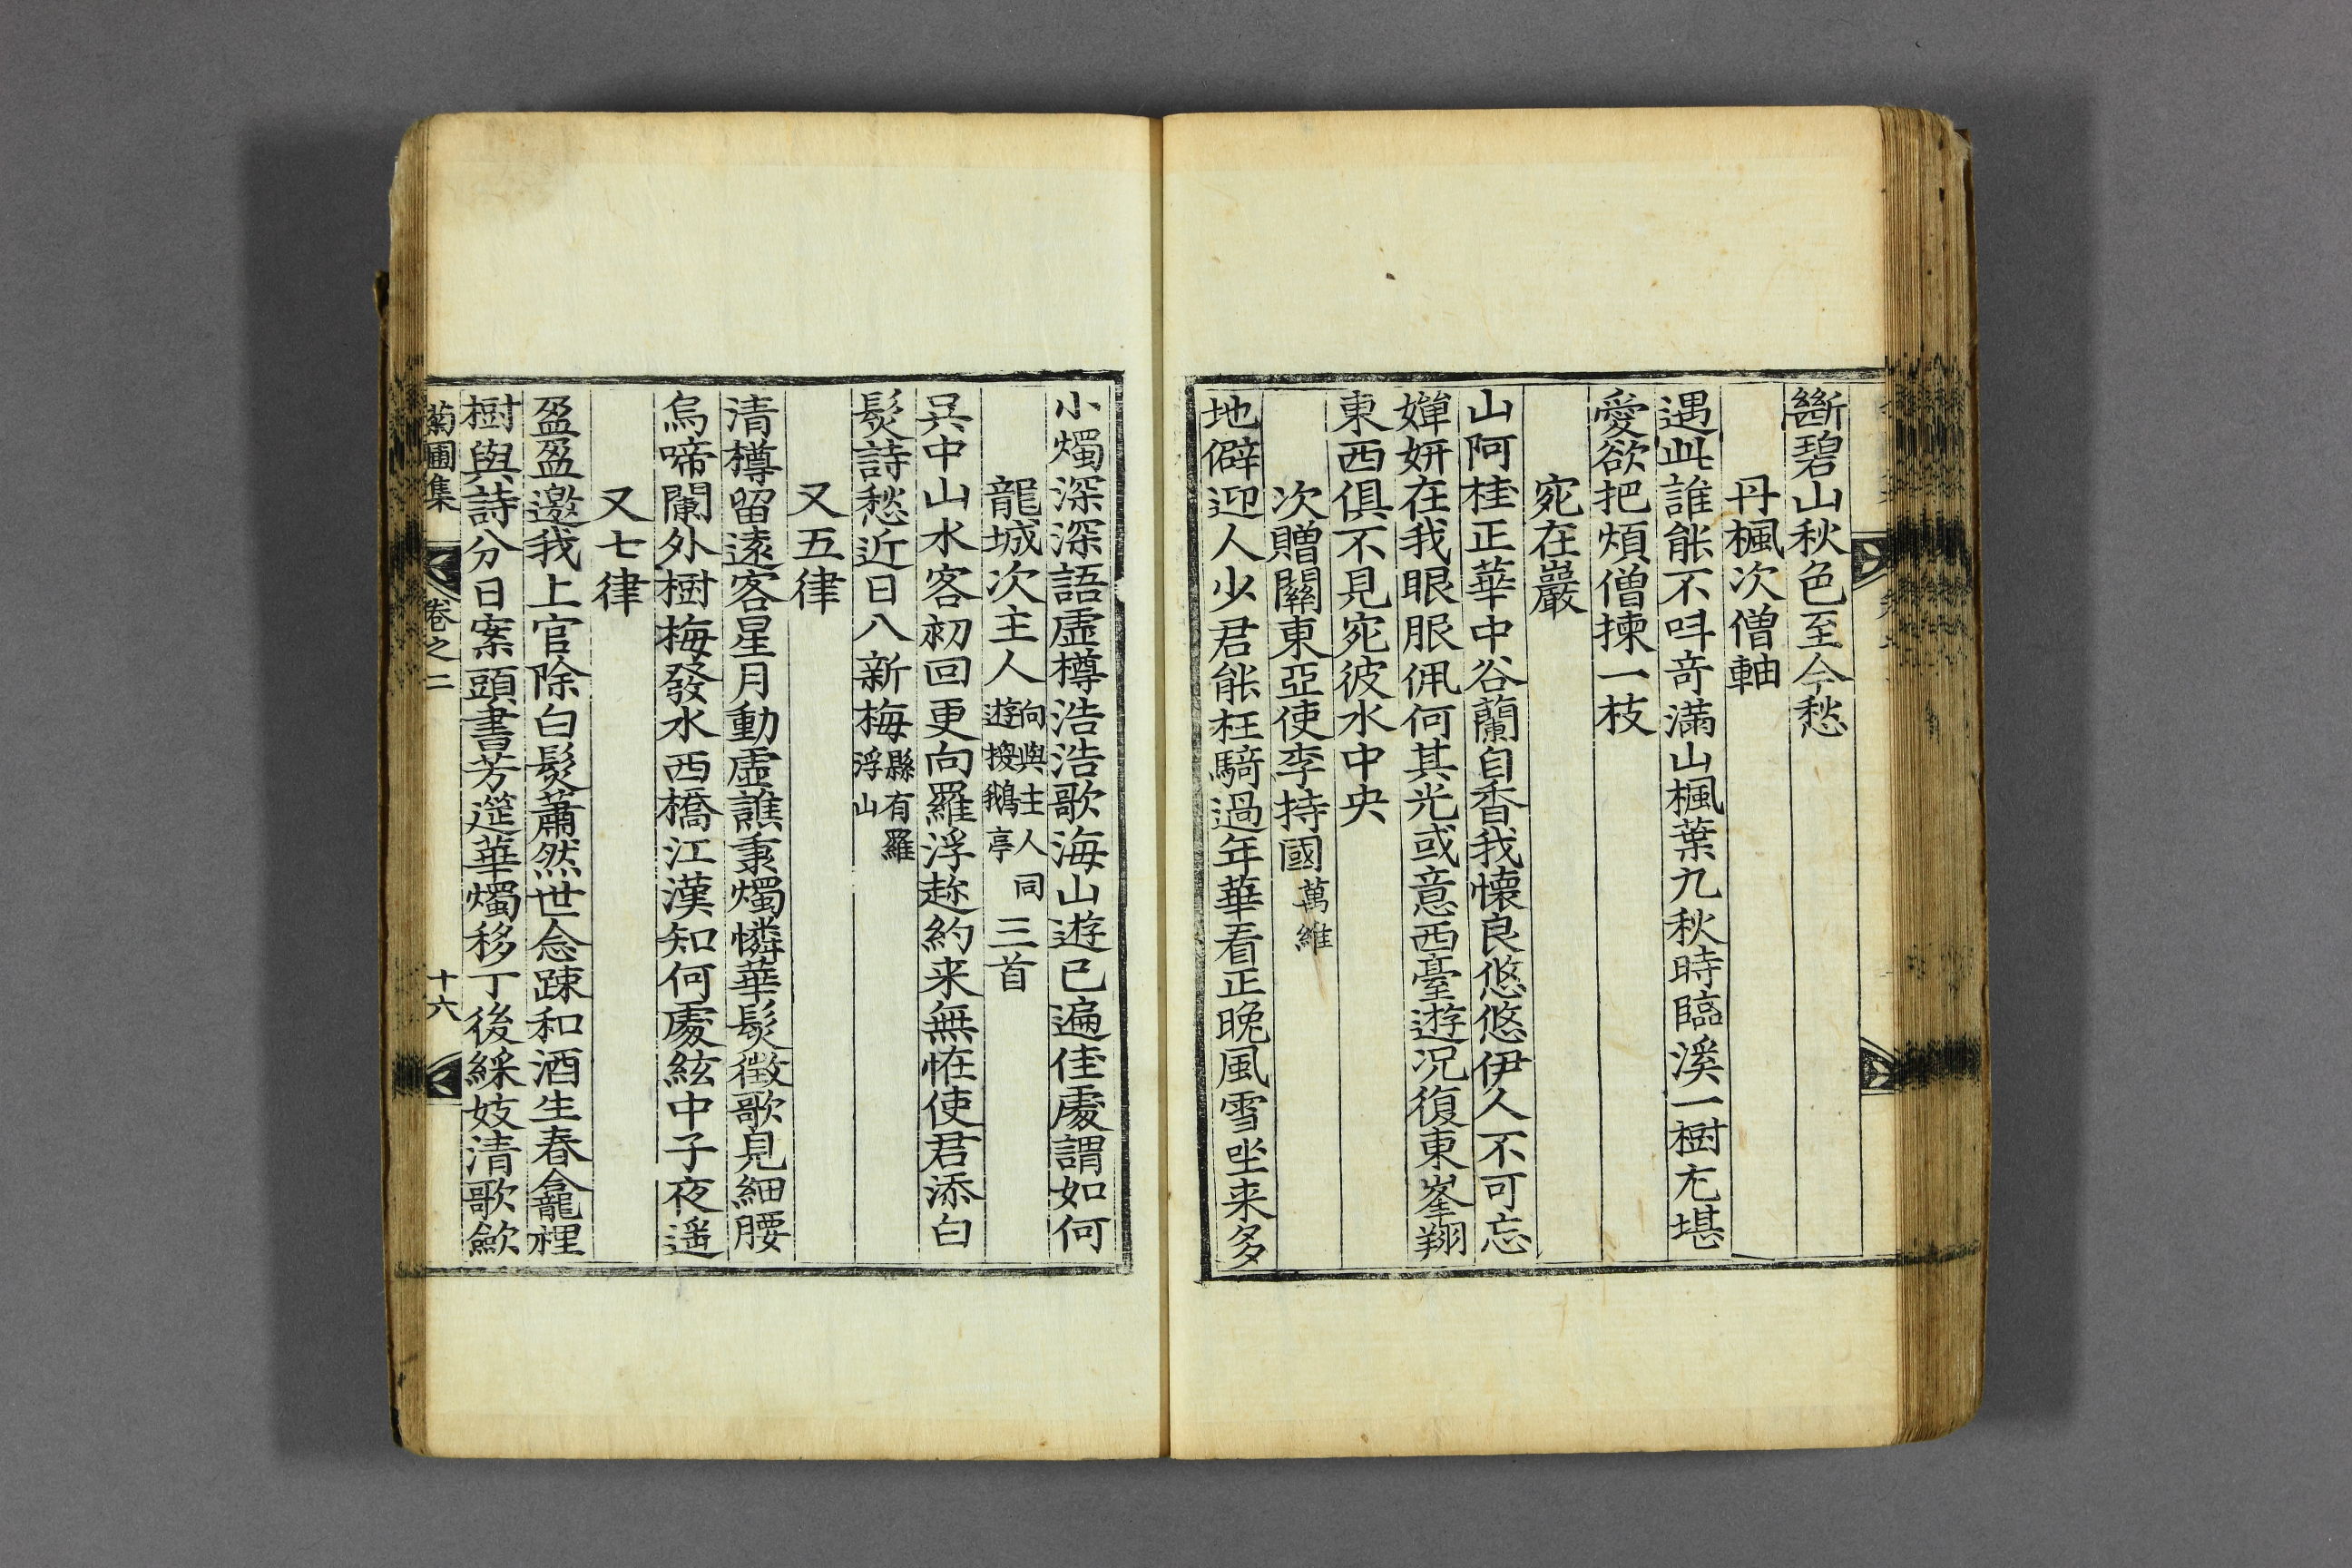 斷碧山秋色至今愁
丹楓次僧軸
遇此誰能不呌奇滿山楓葉九秋時臨溪一樹尤堪
愛欲把煩僧揀一枝
宛在巖
山阿桂正華中谷蘭自香我懷良悠悠伊久不可忘
嬋妍在我眼服佩何其光或意西臺遊况復東峯翔
東西俱不見宛彼水中央
次贈關東亞使李持國萬維
地僻迎人少君能枉騎過年華看正晚風雪坐来多
小燭深深語虛樽浩浩歌海山遊已遍佳處謂如何
龍城次主人向與主人同遊換鵝亭三首
吳中山水客初回更向羅浮趂約来無恠使君添白
髮詩愁近日八新梅縣有羅浮山
又五律
清樽留遠客星月動虛譙秉燭憐華髮徵歌見細腰
烏啼闌外樹梅發水西橋江漢知何處絃中子夜遥
又七律
盈盈邀我上官除白髮蕭然世念踈和酒生春龕裡
樹與詩分日案頭書芳筵華燭移丁後綵妓清歌歛
菊圃集 卷之二 十六